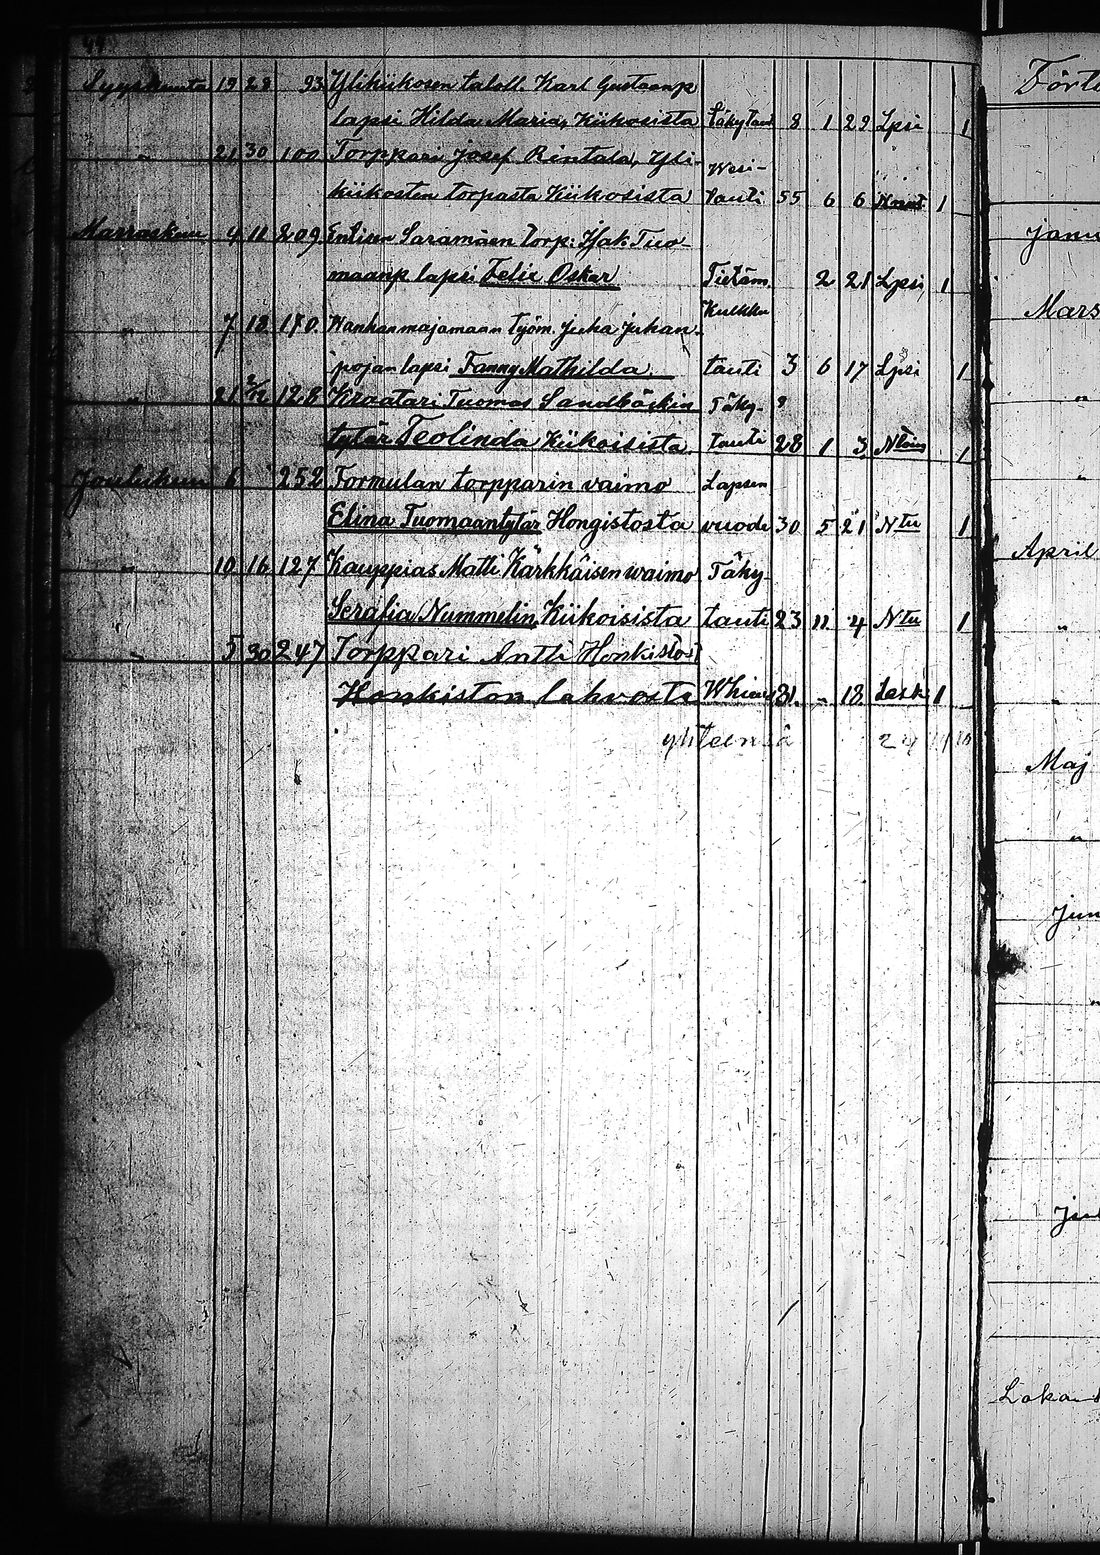 44
Syyskuuta 19 28 93 Ylikiikosen taloll. Karl Gustaanp
lapsi Hilda Maria, Kiikosista Täkytau 8 1 29 Lpsi 1
" 21 30 100 Torppari Josef Rintala, Yli- Wesi-
kiikosten torpasta Kiikosista tauti 55 6 6 1
Marraskuu 4 11 209 Entisen Saramäen torp: Isak Tuo-
maanp lapsi Felix Oskar Tietäm. 2 21 Lpsi 1
" 7 18 170. Wanhanmajamaan työm. Juha Juhan- Kulkku
pojan lapsi Fanny Mathilda tauti 3 6 17 Lpsi 1
" 21 2/12 128 Kraatari Tuomas Sandbäckin Täky-
tytär Teolinda Kiikoisista tauti 28 1 3 1
Joulukuu 6 252 Formulan torpparin vaimo Lapsen
Elina Tuomaantytär Hongistosta vuode 30 5 21 Ntu 1
" 10 16 127 Kauppias Matti Kärkkäisen waimo Täky-
Serafia Nummelin Kiikoisista tauti 23 11. 4 Ntu 1
" 5 30 247 Torppari Antti Honkistos
Honkiston lahvosta 81. " 18. Lesk 1
yhteensä 24
Förte
Janu
Mars
"
"
April
"
"
Maj
"
Jun
"
Jul
Loka